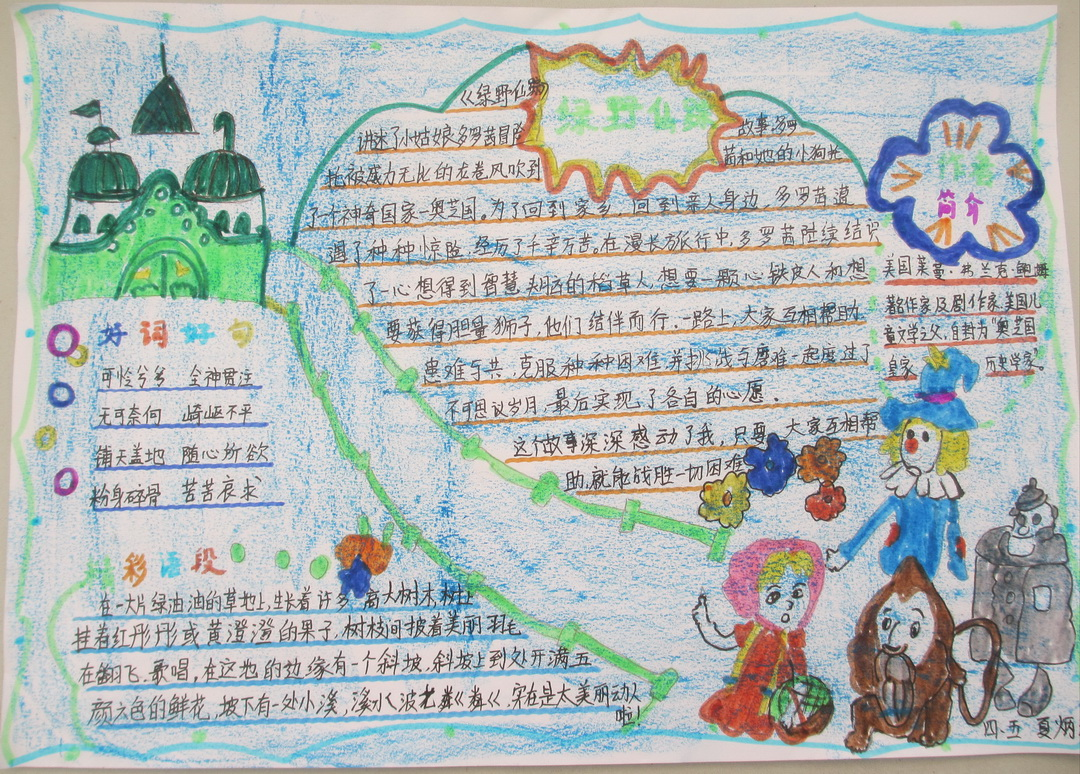 绿野仙踪
《绿野仙踪》 故事
讲述了小姑娘多罗茜冒险 故事.多罗
茜和她的小狗托
托被威力无比的龙卷风吹到
了一个神奇国家-奥芝国。为了回到家乡,回到亲人身边,多罗茜遭
遇了种种惊险,经历了千辛万苦。在漫长旅行中,多罗茜陆续结识
了一心想得到智慧头脑的稻草人,想要一颗心铁皮人和想
要获得胆量狮子,他们结伴而行.一路上,大家互相帮助
患难与共,克服种种困难,并挑战与磨难一起度过了
不可思议岁月,最后实现了各自的心愿.
这个故事深深感动了我,只要大家互相帮
助,就能战胜一切困难
作者
简介
美国莱曼·弗兰克·鲍姆
著作家及剧作家,美国儿
童文学之父,自封为"奥芝国
皇家 历史学家"
好词好句
可怜兮兮 全神贯注
无可奈何 崎岖不平
铺天盖地 随心所欲
粉身碎骨 苦苦哀求
精彩语段
在一大片绿油油的草地上,生长着许多高大树木,树上
挂着红彤彤或黄澄澄的果子,树枝间披着美丽羽毛
在翻飞.歌唱,在这地的边缘有一个斜坡,斜坡上到处开满五
颜六色的鲜花,坡下有一处小溪,溪水波光粼粼,实在是太美丽动人
啦!
四.五 夏炳